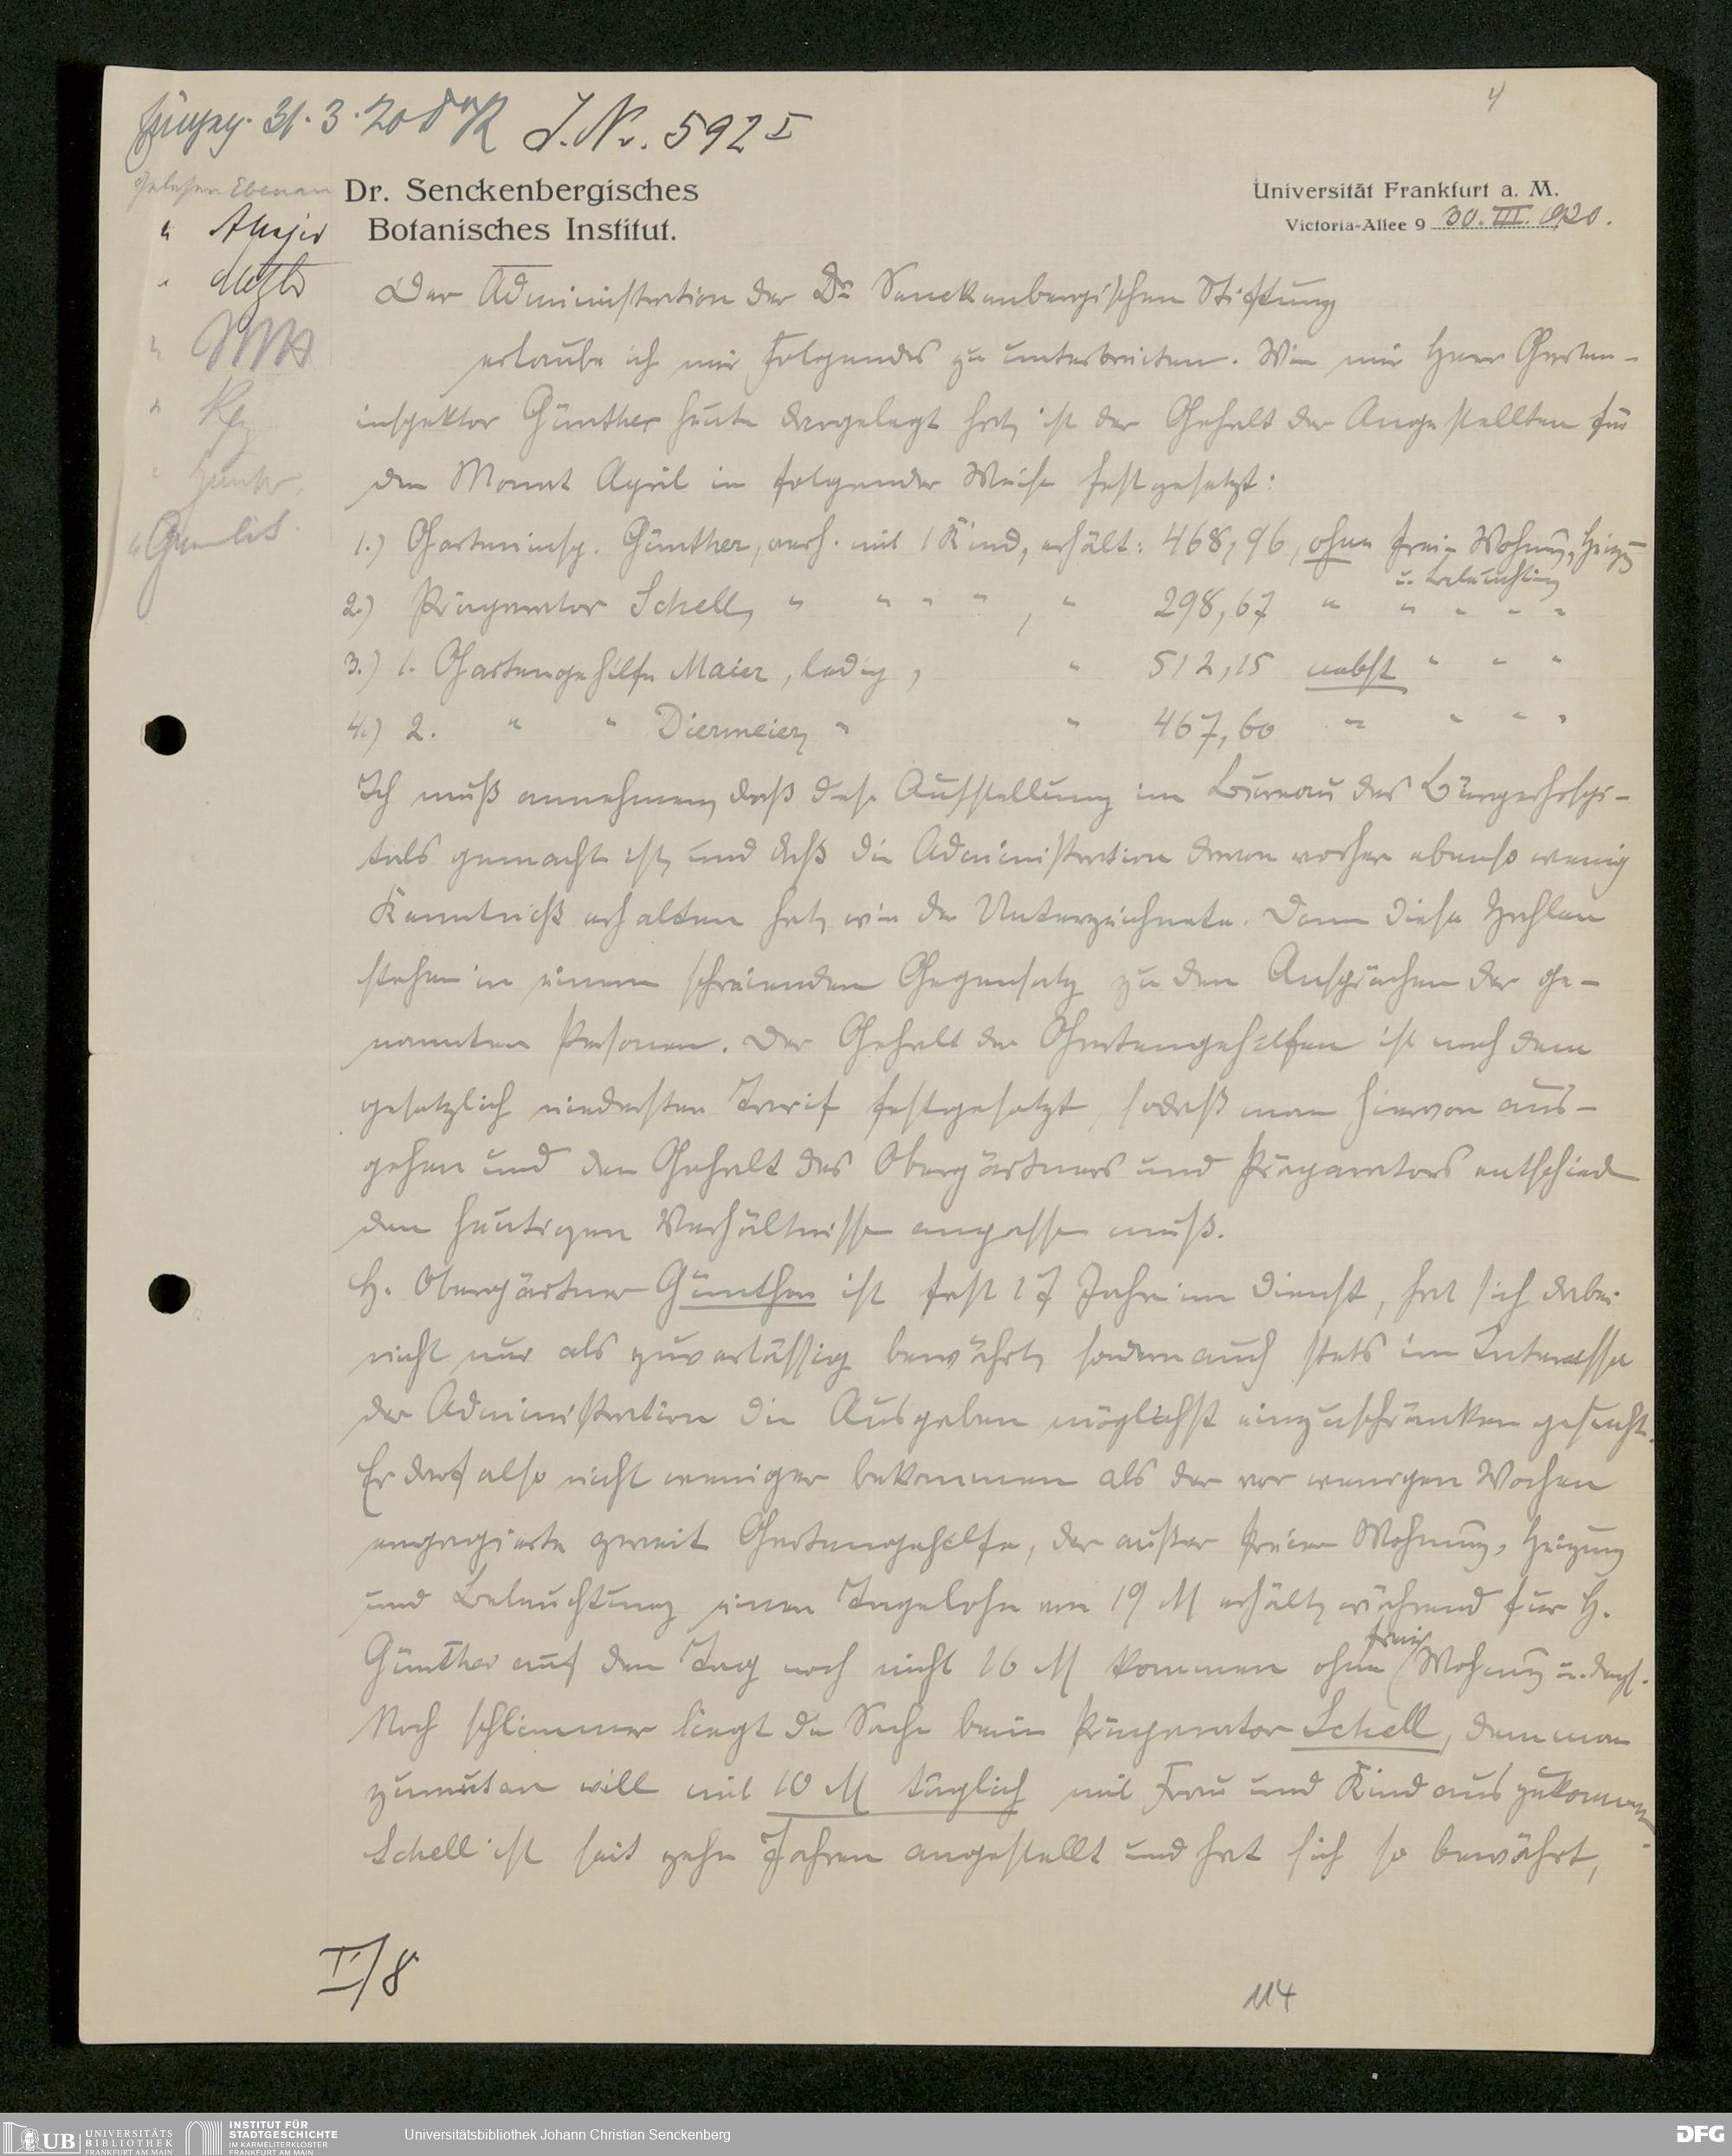 4
Eingeg. 31.3.20 J.Nr. 592 I
gelesen Ebenau
Dr. Senckenbergisches
Botanisches Institut.
Universität Frankfurt a. M.
Victoria-Allee 9 30. III. 1920.
Der Administration der Dr. Senckenbergischen Stiftung
erlaube ich mir Folgendes zu unterbreiten. Wie mir Herr Garten-
inspektor Günther heute dargelegt hat, ist der Gehalt der Angestellten für
den Monat April in folgender Weise festgesetzt:
1.) Garteninsp. Günther, verh. mit 1 Kind, erhält: 468,96, ohne freie Wohnung, Heizg
u. Beleuchtung
2.) Präparator Schell, " " " " , " 298,67 " " " " "
3.) 1. Gartengehilfe Maier, ledig, " 512,15 nebst " " "
4.) 2. " " Diermeier, " " 467,60 " " " "
Ich muß annehmen, daß diese Aufstellung im Bureau des Bürgerhospi-
tals gemacht ist, und daß die Administration davon vorher ebenso wenig
Kenntniß erhalten hat, wie der Unterzeichnete. Denn diese Zahlen
stehen in einem schreienden Gegensatz zu den Ansprüchen der ge-
nannten Personen. Der Gehalt der Gartengehilfen ist nach dem
gesetzlich niedersten Tarif festgesetzt, sodaß man hiervon aus-
gehen und den Gehalt des Obergärtners und Präparators entschied
den heutigen Verhältnissen anpassen muß.
H. Obergärtner Günther ist fast 17 Jahre im Dienst, hat sich dabei
nicht nur als zuverlässig bewährt, sondern auch stets im Interesse
der Administration die Ausgaben möglichst einzuschränken gesucht.
Er darf also nicht weniger bekommen als der vor wenigen Wochen
engagierte zweite Gartengehilfe, der außer freier Wohnung, Heizung
und Beleuchtung einen Tagelohn von 19 M erhält, während für H.
Günther auf den Tag noch nicht 16 M kommen ohne freie Wohnung u. dergl.
Noch schlimmer liegt die Sache beim Präparator Schell, dem man
zumuten will mit 10 M täglich mit Frau und Kind auszukommen.
Schell ist seit zehn Jahren angestellt und hat sich so bewährt,
I/8
114
UB UNIVERSITÄTS
BIBLIOTHEK
FRANKFURT AM MAIN
INSTITUT FÜR
STADTGESCHICHTE
IM KARMELITERKLOSTER
FRANKFURT AM MAIN
Universitätsbibliothek Johann Christian Senckenberg
DFG